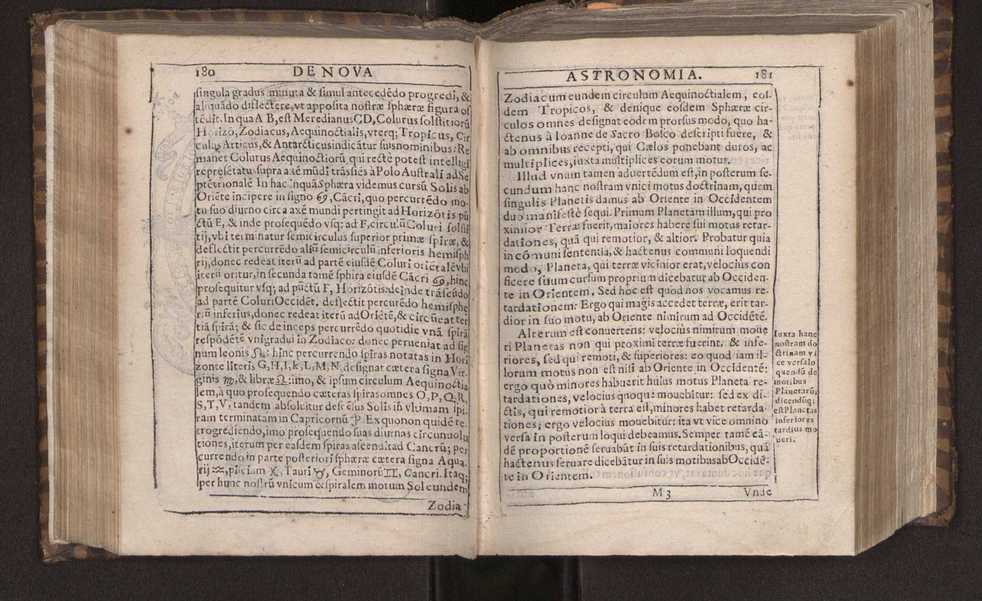 180 DE NOVA
singula gradus minuta & simul antecedẽdo progredi, &
aliquãdo deflectere, vt apposita nostræ sphæræ figura os
tẽdit. In qua A B, est Meredianus CD, Colurus solstitiorũ
Horizõ, Zodiacus, Aequinoctialis, vterq; Tropicus, Cir
culus Articus, & Antarcticus indicãtur suis nominibus: Re
manet Colurus Aequinoctiorũ, qui rectè potest intelligi
represẽtatu supra axẽ mũdi trãsiẽs à Polo Australi ad Se
ptẽtrionalẽ In hac inquã Sphæra videmus cursũ Solis ab
Oriẽte incipere in signo ♋, Cãcri, quo percurrẽdo mo
tu suo diurno circa axẽ mundi pertingit ad Horizõtis pũ
ctũ E, & inde prosequẽdo vsq: ad F, circuлũ Coluri solsti
tij, vbi terminatur semicirculus superior primæ spiræ, &
deflectit percurrẽdo aliũ semicirculũ inferioris hemisph
rij, donec redeat iterũ ad partẽ eiusdẽ Coluri oriẽtalẽ vbi
iterũ oritur, in secunda tamẽ sphira eiusdẽ Cãcri ♋, hinc
prosequitur vsq; ad pũctũ F, Horizõtis: deinde trãseũdo
ad partẽ Coluri Occidẽt, deflectit percurẽdo hemisphe
rũ inferius, donec redeat iterũ ad Oriẽtẽ, & circueat ter
tiã spirã; & sic deinceps percurrẽdo quotidie vnã spirã
respõdẽtẽ vni gradui in Zodiaco: donec perueniat ad sig
num leonis ♌: hinc percurrendo spiras notatas in Hori
zonte lĩteris G, H, I, k, L, M, N, designat cætera signa Vir
ginis ♍, & libræ ♎: imo, & ipsum circulum Aequinoctia
lem, à quo prosequendo cæteras spiras omnes O, P, Q, R,
S, T, V, tandem absoluitur descẽsus Solis in vltimam spi
ram terminatam in Capricornũ ♑. Ex quo non quidẽ re
trogrediendo, imo prosequendo suas diurnas circunuolu
tiones, iterum per easdem spiras ascendit ad Cancrũ; per
currendo in parte posteriori sphæræ cætera signa Aqua
rij ♒, piscium ♓, Tauri ♉, Geminorũ ♊, Cancri. Itaq;
per hunc nostrũ vnicum & spiralem motum Sol eundem
Zodia-
ASTRONOMIA. 181
Zodiacum eundem circulum Aequinoctialem, eos
dem Tropicos, & denique eosdem Sphæræ cir-
culos omnes designat eodem prorsus modo, quo ha-
ctenus à Ioanne de Sacro Bosco descripti fuere, &
ab omnibus recepti, qui Cælos ponebant duros, ac
multiplices, iuxta multiplices eorum motus.
Illud vnum tamen aduertẽdum est, in posterum se-
cundum hanc nostram vnici motus doctrinam, quem
singulis Planetis damus ab Oriente in Occidentem
duo manifestè sequi. Primum Planetam illum, qui pro
ximior Terræ fuerit, maiores habere sui motus retar-
dationes, quã qui remotior, & altior. Probatur quia
in cõmuni sententia, & hactenus communi loquendi
modo, Planeta, qui terræ vicinior erat, velocius con
ficere suum cursum proprium dicebatur ab Occiden-
te in Orientem. Sed hoc est quod nos vocamus re-
tardationem: Ergo qui magis accedet terræ, erit tar-
dior in suo motu, ab Oriente nimirum ad Occidẽtẽ.
Alterum est conuertens: velocius nimirum moue
ri Planetas non qui proximi terræ fuerint, & infe-
riores, sed qui remoti, & superiores: eo quod iam il-
lorum motus non est nisi ab Oriente in Occidentẽ:
ergo quò minores habuerit huius motus Planeta re-
tardationes, velocius quoque mouebitur: sed ex di-
ctis, qui remotior à terra est, minores habet retarda-
tiones; ergo velocius mouebitur: ita vt vice omnino
versa in posterum loqui debeamus. Semper tamẽ eã-
dẽ proportionẽ seruabũt in suis retardationibus, quã
hactenus seruare dicebãtur in suis motibus ab Occidẽ-
te in Orientem.
Iuxta hanc
nostram do
ctrinam vi
ce versa lo
quendũ de
motibus
Planetarũ;
dicendũq;
est Planetas
inferiores
tardius mo
ueri.
M 3 Vnde